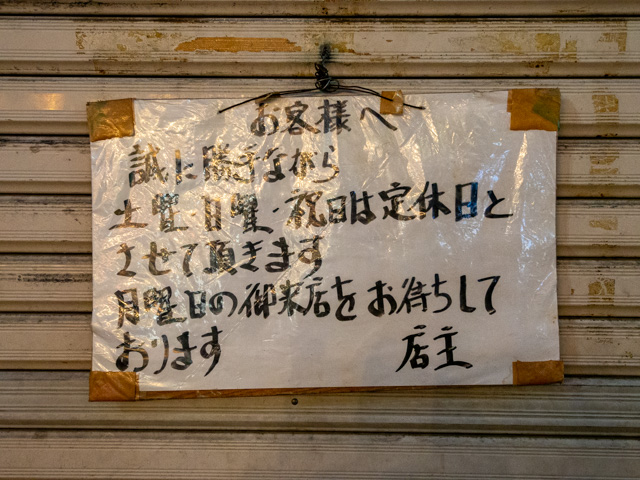 お客様へ
誠に勝手ながら
土曜・日曜・祝日は定休日と
させて頂きます
月曜日の御来店をお待ちして
おります 店主